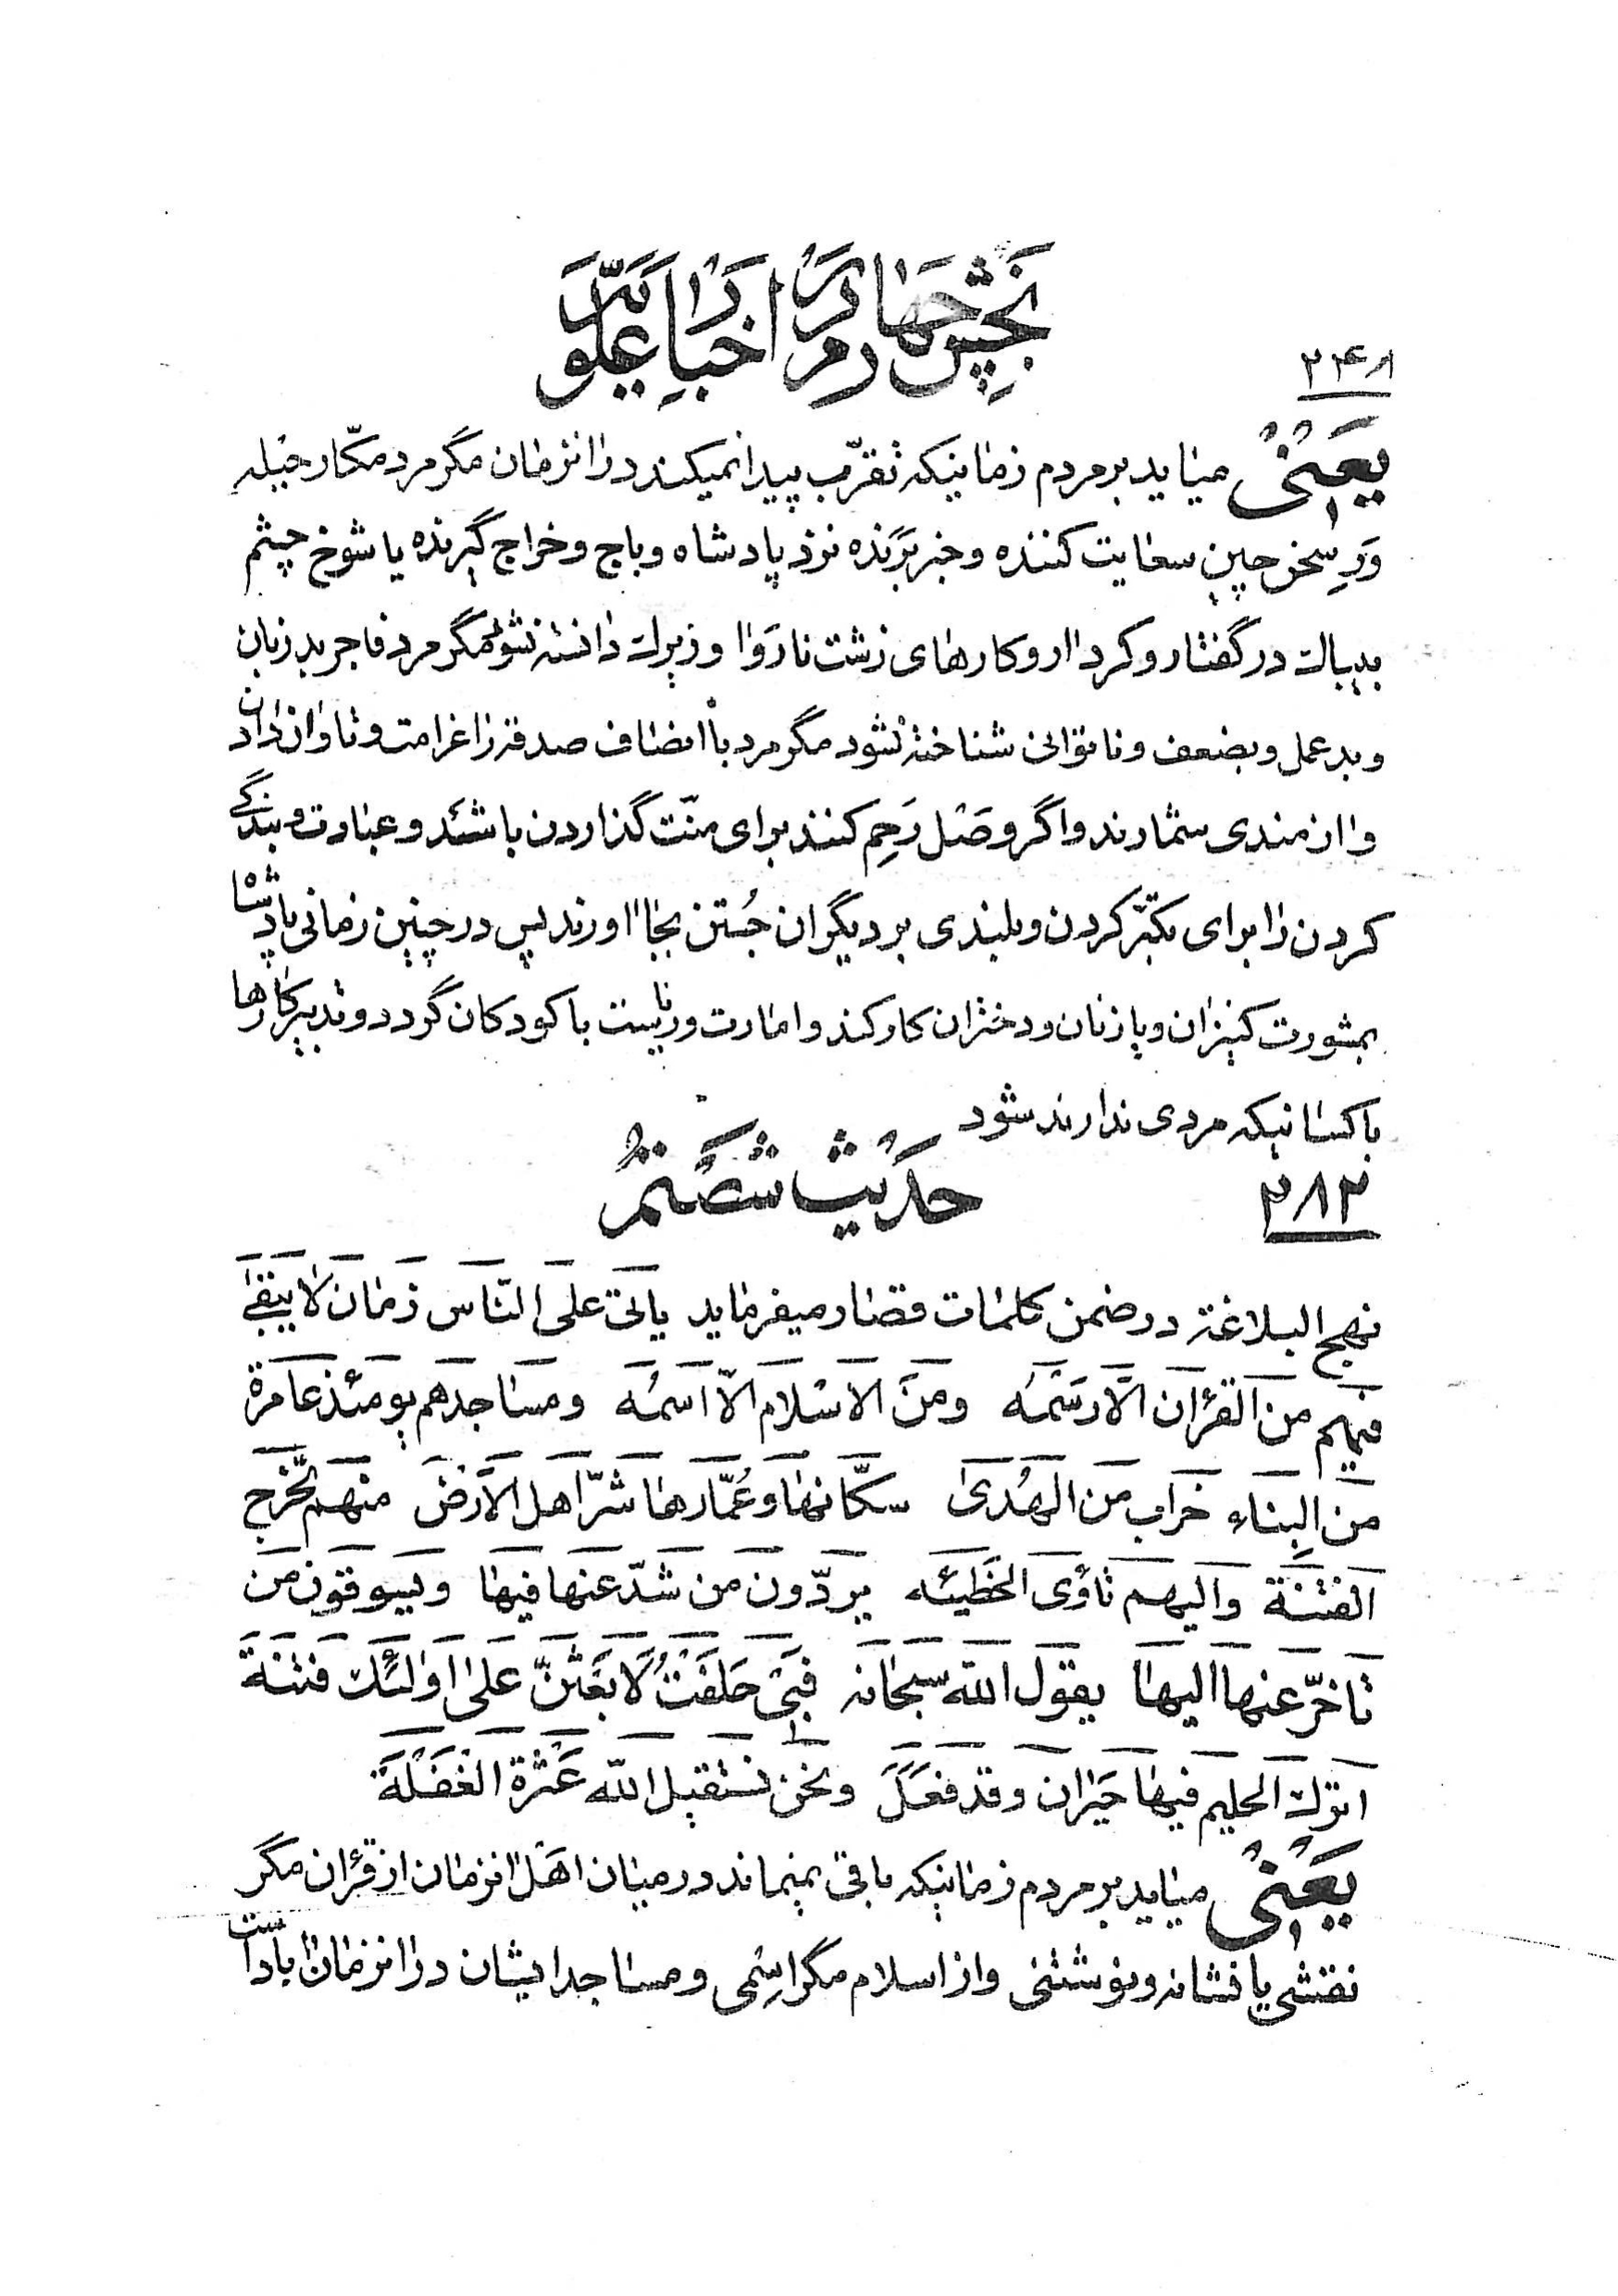 بخش چهارم در اخبار علویه
۲۴۸
یعنی میاید بر مردم زمانیکه تقرّب پیدا نمیکند در انزمان مگر مرد مکّار حیله
وَرِ سخن چین سعایت کننده و خبر برَنده نزد پادشاه و باج و خراج گیرنده یا شوخ چشم
بیباک در گفتار و کردار و کارهای زشت ناروا و زیرک دانسته نشود مگر مرد فاجر بد زبان
و بد عمل و بضعف و ناتوانی شناخته نشود مگر مرد باانصاف صدقه را غرامت و تاوان دادن
و ازمندی شمارند و اگر وصل رَحِم کنند برای منّت گذاردن باشد و عبادت و بندگی
کردن را برای تکبّر کردن و بلندی بر دیگران جُستن بجا اورند پس در چنین زمانی پادشاه
بمشورت کنیزان و یا زنان و دختران کار کند و امارت و ریاست با کودکان گردد و تدبیر کارها
با کسانیکه مردی ندارند شود
۲۸۲ حدیث شصتم
نهج البلاغة در ضمن کلمات قصار میفرماید یاتی علی النّاس زمان لا یبقی
فیهم من القرٰان الّا رسمُه ومن الاسلام الّا اسمُه ومساجدهم یومئذ عامرة
من البِناءِ خراب من الهُدیٰ سکّانها وعُمّارها شرّ اهل الأرض منهم تخرج
الفتنة والیهم تأوی الخطیئه یردّون من شذّ عنها فیها ویسوقون من
تأخّر عنها الیها یقول الله سبحانه فبی حلفتُ لابعثنّ علی اولئک فتنة
اترک الحلیم فیها حیران وقد فعل ونحن نستقیل الله عثرة الغفلة
یعنی میاید بر مردم زمانیکه باقی نمیماند در میان اهل انزمان از قرٰان مگر
نقشی یا نشانه و نوشتنی و از اسلام مگر اِسمی و مساجد ایشان در انزمان اباد است